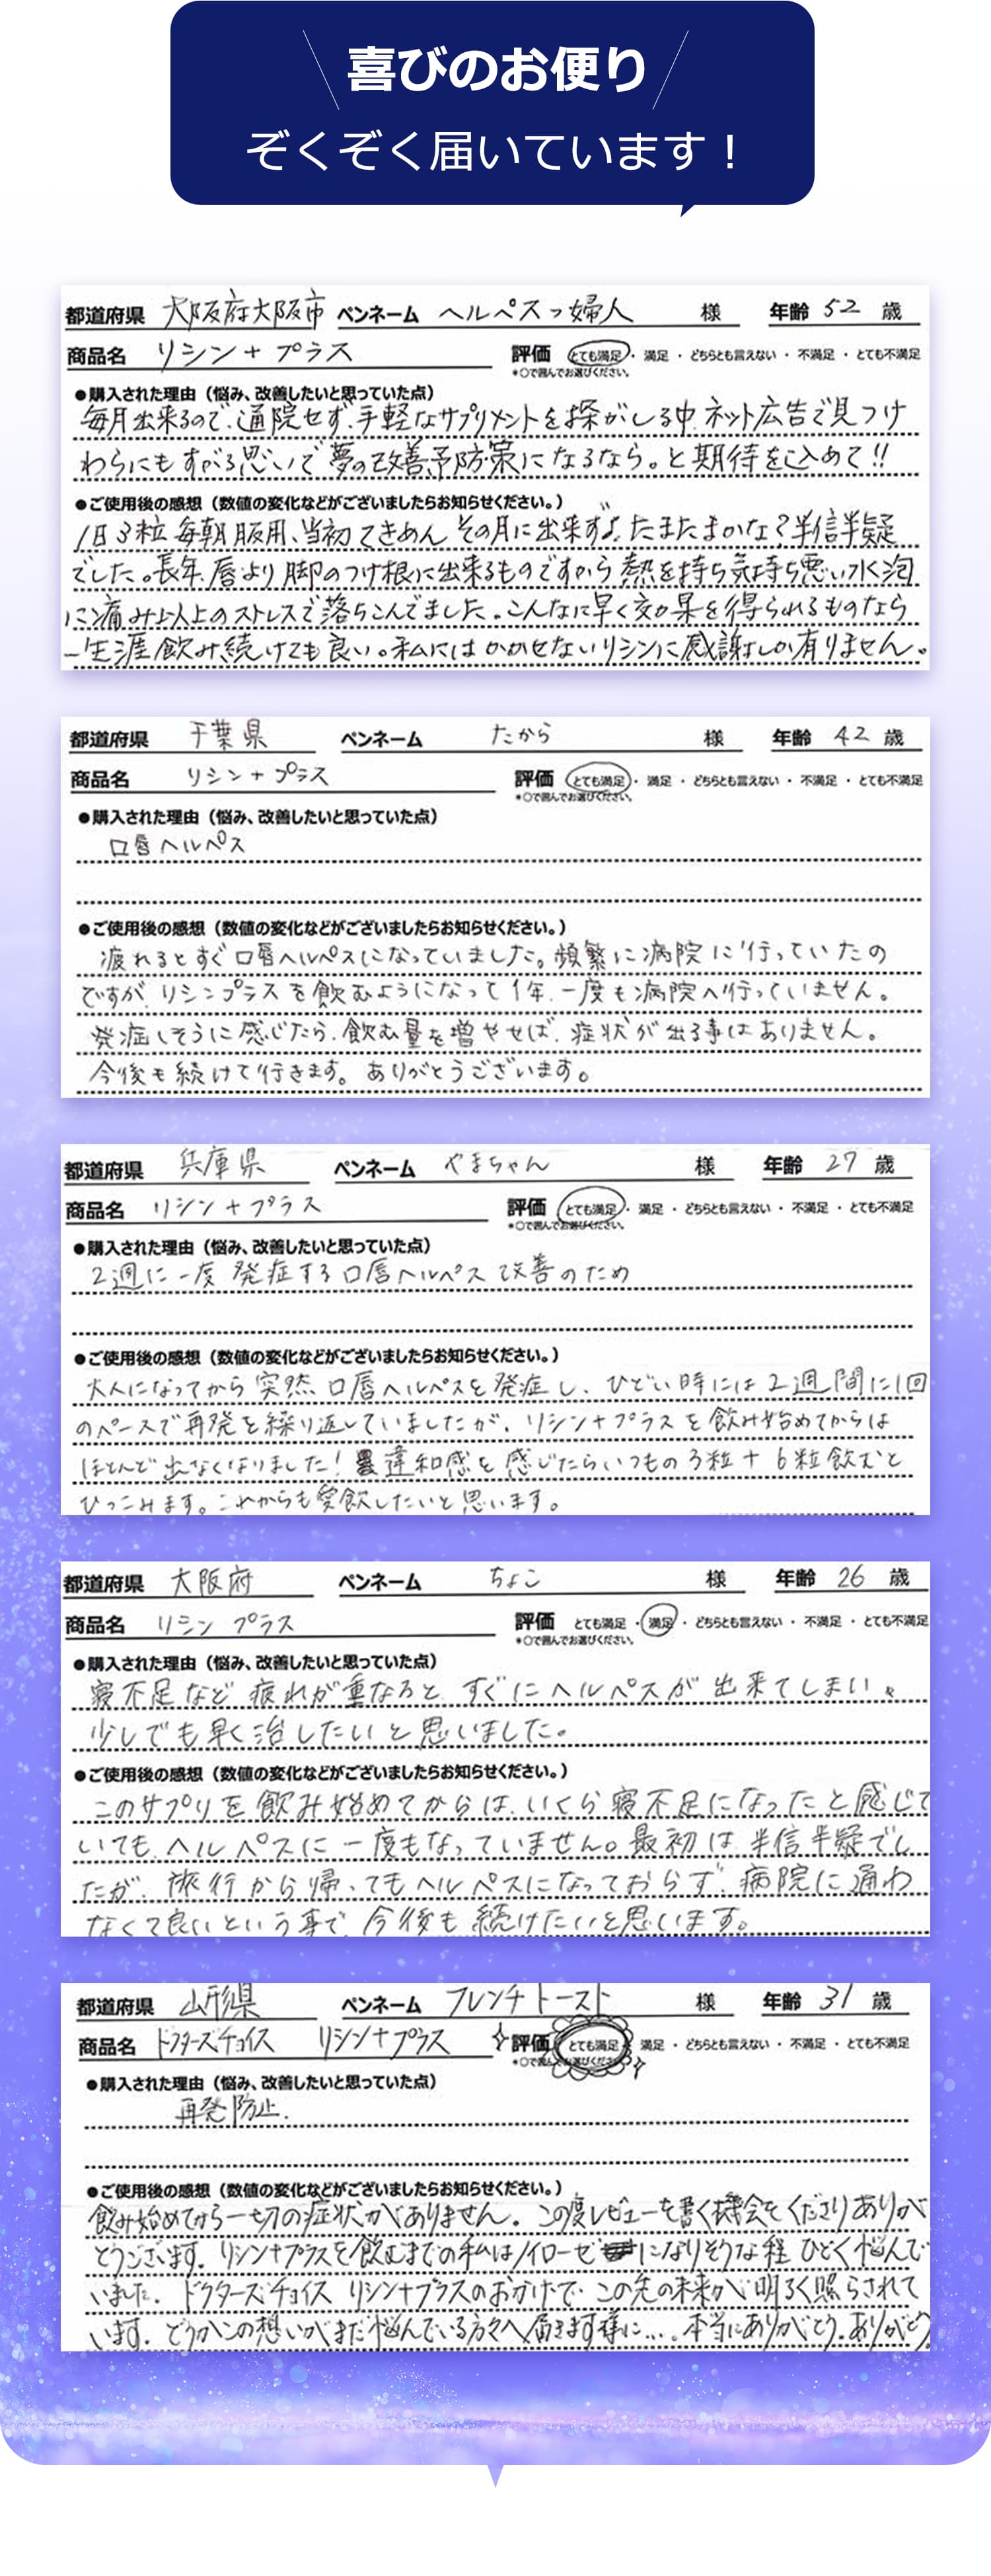 喜びのお便り
ぞくぞく届いています！
都道府県 大阪府大阪市 ペンネーム ヘルペスっ婦人 様 年齢 52 歳
商品名 リシン＋プラス 評価 とても満足・満足・どちらとも言えない・不満足・とても不満足
*○で囲んでお選びください。
●購入された理由（悩み、改善したいと思っていた点）
毎月出来るので、通院せず、手軽なサプリメントを探がしる中、ネット広告で見つけ
わらにもすがる思いで夢の改善予防策になるなら。と期待を込めて!!
●ご使用後の感想（数値の変化などがございましたらお知らせください。）
1日3粒毎朝服用、当初てきめん その月に出来ず♪たまたまかな？半信半疑
でした。長年、唇より脚のつけ根に出来るものですから熱を持ち気持ち悪い水泡
に痛み以上のストレスで落ちこんでました。こんなに早く効果を得られるものなら
一生涯飲み続けても良い。私にはかかせないリシンに感謝しか有りません。
都道府県 千葉県 ペンネーム たから 様 年齢 42 歳
商品名 リシン＋プラス 評価 とても満足・満足・どちらとも言えない・不満足・とても不満足
*○で囲んでお選びください。
●購入された理由（悩み、改善したいと思っていた点）
口唇ヘルペス
●ご使用後の感想（数値の変化などがございましたらお知らせください。）
疲れるとすぐ口唇ヘルペスになっていました。頻繁に病院に行っていたの
ですが、リシンプラスを飲むようになって1年、一度も病院へ行っていません。
発症しそうに感じたら、飲む量を増やせば、症状が出る事はありません。
今後も続けて行きます。ありがとうございます。
都道府県 兵庫県 ペンネーム やまちゃん 様 年齢 27 歳
商品名 リシン＋プラス 評価 とても満足・満足・どちらとも言えない・不満足・とても不満足
*○で囲んでお選びください。
●購入された理由（悩み、改善したいと思っていた点）
2週に一度発症する口唇ヘルペス改善のため
●ご使用後の感想（数値の変化などがございましたらお知らせください。）
大人になってから突然口唇ヘルペスを発症し、ひどい時には2週間に1回
のペースで再発を繰り返していましたが、リシン＋プラスを飲み始めてからは
ほとんど出なくなりました！違和感を感じたらいつもの3粒＋6粒飲むと
ひっこみます。これからも愛飲したいと思います。
都道府県 大阪府 ペンネーム ちょこ 様 年齢 26 歳
商品名 リシン プラス 評価 とても満足・満足・どちらとも言えない・不満足・とても不満足
*○で囲んでお選びください。
●購入された理由（悩み、改善したいと思っていた点）
寝不足など疲れが重なると、すぐにヘルペスが出来てしまい、
少しでも早く治したいと思いました。
●ご使用後の感想（数値の変化などがございましたらお知らせください。）
このサプリを飲み始めてからは、いくら寝不足になったと感じて
いても、ヘルペスに一度もなっていません。最初は、半信半疑でし
たが、旅行から帰ってもヘルペスになっておらず、病院に通わ
なくて良いという事で、今後も続けたいと思います。
都道府県 山形県 ペンネーム フレンチトースト 様 年齢 31 歳
商品名 ドクターズチョイス リシン＋プラス 評価 とても満足・満足・どちらとも言えない・不満足・とても不満足
*○で囲んでお選びください。
●購入された理由（悩み、改善したいと思っていた点）
再発防止.
●ご使用後の感想（数値の変化などがございましたらお知らせください。）
飲み始めてから一切の症状がありません。この度レビューを書く機会をくださりありが
とうございます。リシン＋プラスを飲むまでの私はノイローゼになりそうな程ひどく悩んで
いました。ドクターズチョイス リシン＋プラスのおかげで、この先の未来が明るく照らされて
います。どうかこの想いがまだ悩んでいる方々へ届きます様に…。本当にありがとう。ありがとう